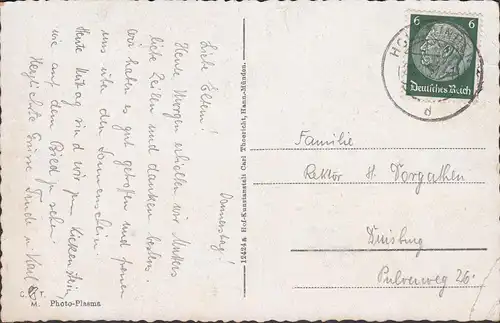 Donnerstag!
Liebe Eltern!
Heute Morgen erhielten wir Mutters
liebe Zeilen und danken bestens.
Wir haben es gut getroffen und freuen
uns über den Sonnenschein.
Heute Mittag sind wir zum
wie auf dem Bild zu sehen.
Herzlichste Grüsse Trude u. Karl
Photo-Plasma
12424 a Hof-Kunstanstalt Carl Thoericht, Hann.-Münden.
6 6
Deutsches Reich
d
Familie
Rektor H. Vorgathen
Duisburg
Pulverweg 26.